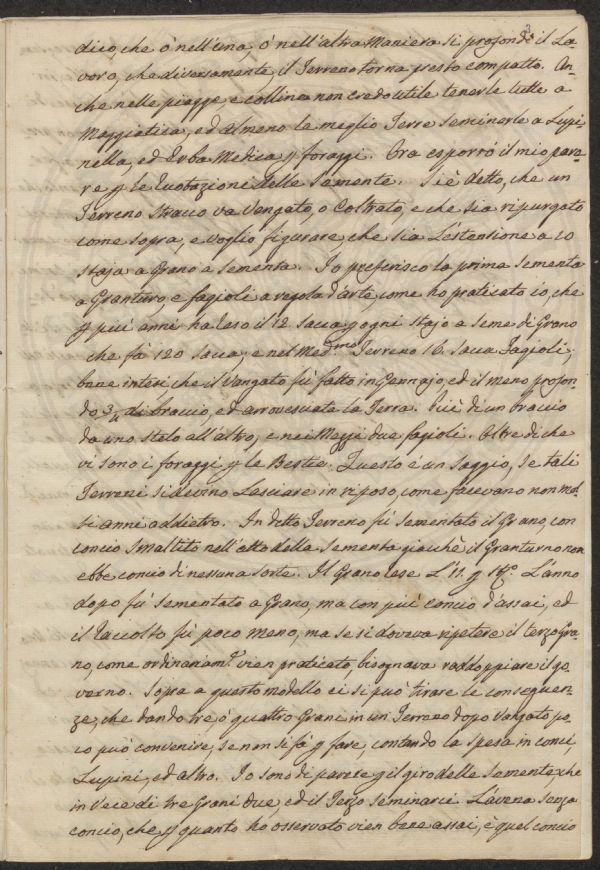 3
dico, che ò nell'una, ò nell'altra Maniera si profondi il La=
voro, che diversamente il Terreno torna presto compatto. An=
che nelle piagge, e colline non credo utile tenerle tutte a
Maggiatica, ed almeno la meglio Terre seminerle a Lupi=
nella, ed Erba Medica p foraggi. Ora esporrò il mio pare=
re p le Ruotazioni delle Semente. Si è detto, che un
Terreno Stracco va Vangato, o Coltrato, e che sia ripurgato
come sopra, e voglio figurare, che sia L'estensione a 10
Staja a Grano a sementa. Io preferisco la prima sementa
a Granturo, e fagioli a regola d'arte, come ho praticato io, che
p più anni ha reso il 12 Sacca p ogni Stajo a seme di Grano
che fà 120 Sacca, e nel Med.mo Terreno 16. Sacca Fagioli,
bene intesi che il Vangato fù fatto in Gennajo, ed il meno profon=
do 3/4 di braccio, ed arrovesciata la Terra. Più di un braccio
da uno Stelo all'altro, e nei Mezzi due fagioli. Oltre di che
vi sono i foraggi p le Bestie. Questo è un Saggio, Se tali
Terreni si devino Lasciare in riposo, come facevano non mol=
ti anni addietro. In detto Terreno fù sementato il Grano, con
concio Smaltito nell'atto della sementa giachè il Granturno non
ebbe concio di nessuna sorte. Il Grano rese L'11. p St.o L'anno
dopo fù sementato a Grano, ma con più concio d'assai, ed
il Raccolto fù poco meno, ma se si doveva ripetere il terzo Gra=
no, come ordinariam.e vien praticato, bisognava raddoppiare il go=
verno. Sopra a questo modello ci si può tirare le conseguen=
ze, che dando tre, ò quattro Grani in un Terreno dopo Vangato po=
co può convenire, se non si fà p fare, contando la spesa in conci,
Lupini, ed altro. Io sono di parere p il giro delle Semente, che
in Vece di tre Grani due, ed il Terzo seminarci L'avena senza
concio, che p quanto ho osservato vien bene assai, e quel concio